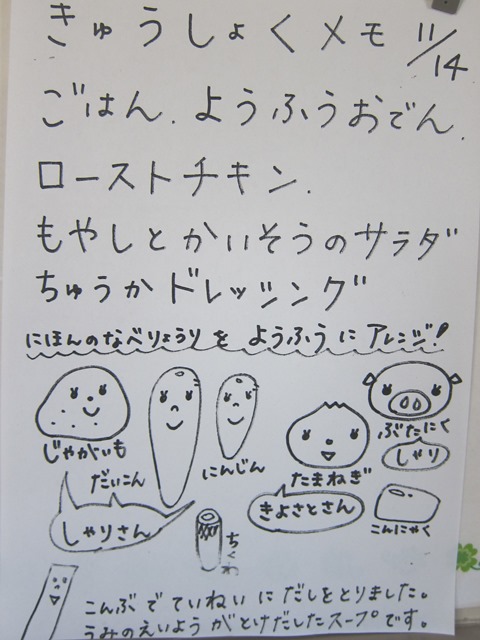 きゅうしょくメモ 11/14
ごはん.ようふうおでん.
ローストチキン.
もやしとかいそうのサラダ
ちゅうかドレッシング
にほんのなべりょうりを ようふうにアレンジ!
じゃがいも
だいこん
にんじん
たまねぎ
ぶたにく
しゃり
しゃりさん
きよさとさん
こんにゃく
ちくわ
こんぶでていねいにだしをとりました。
うみのえいようがとけだしたスープです。